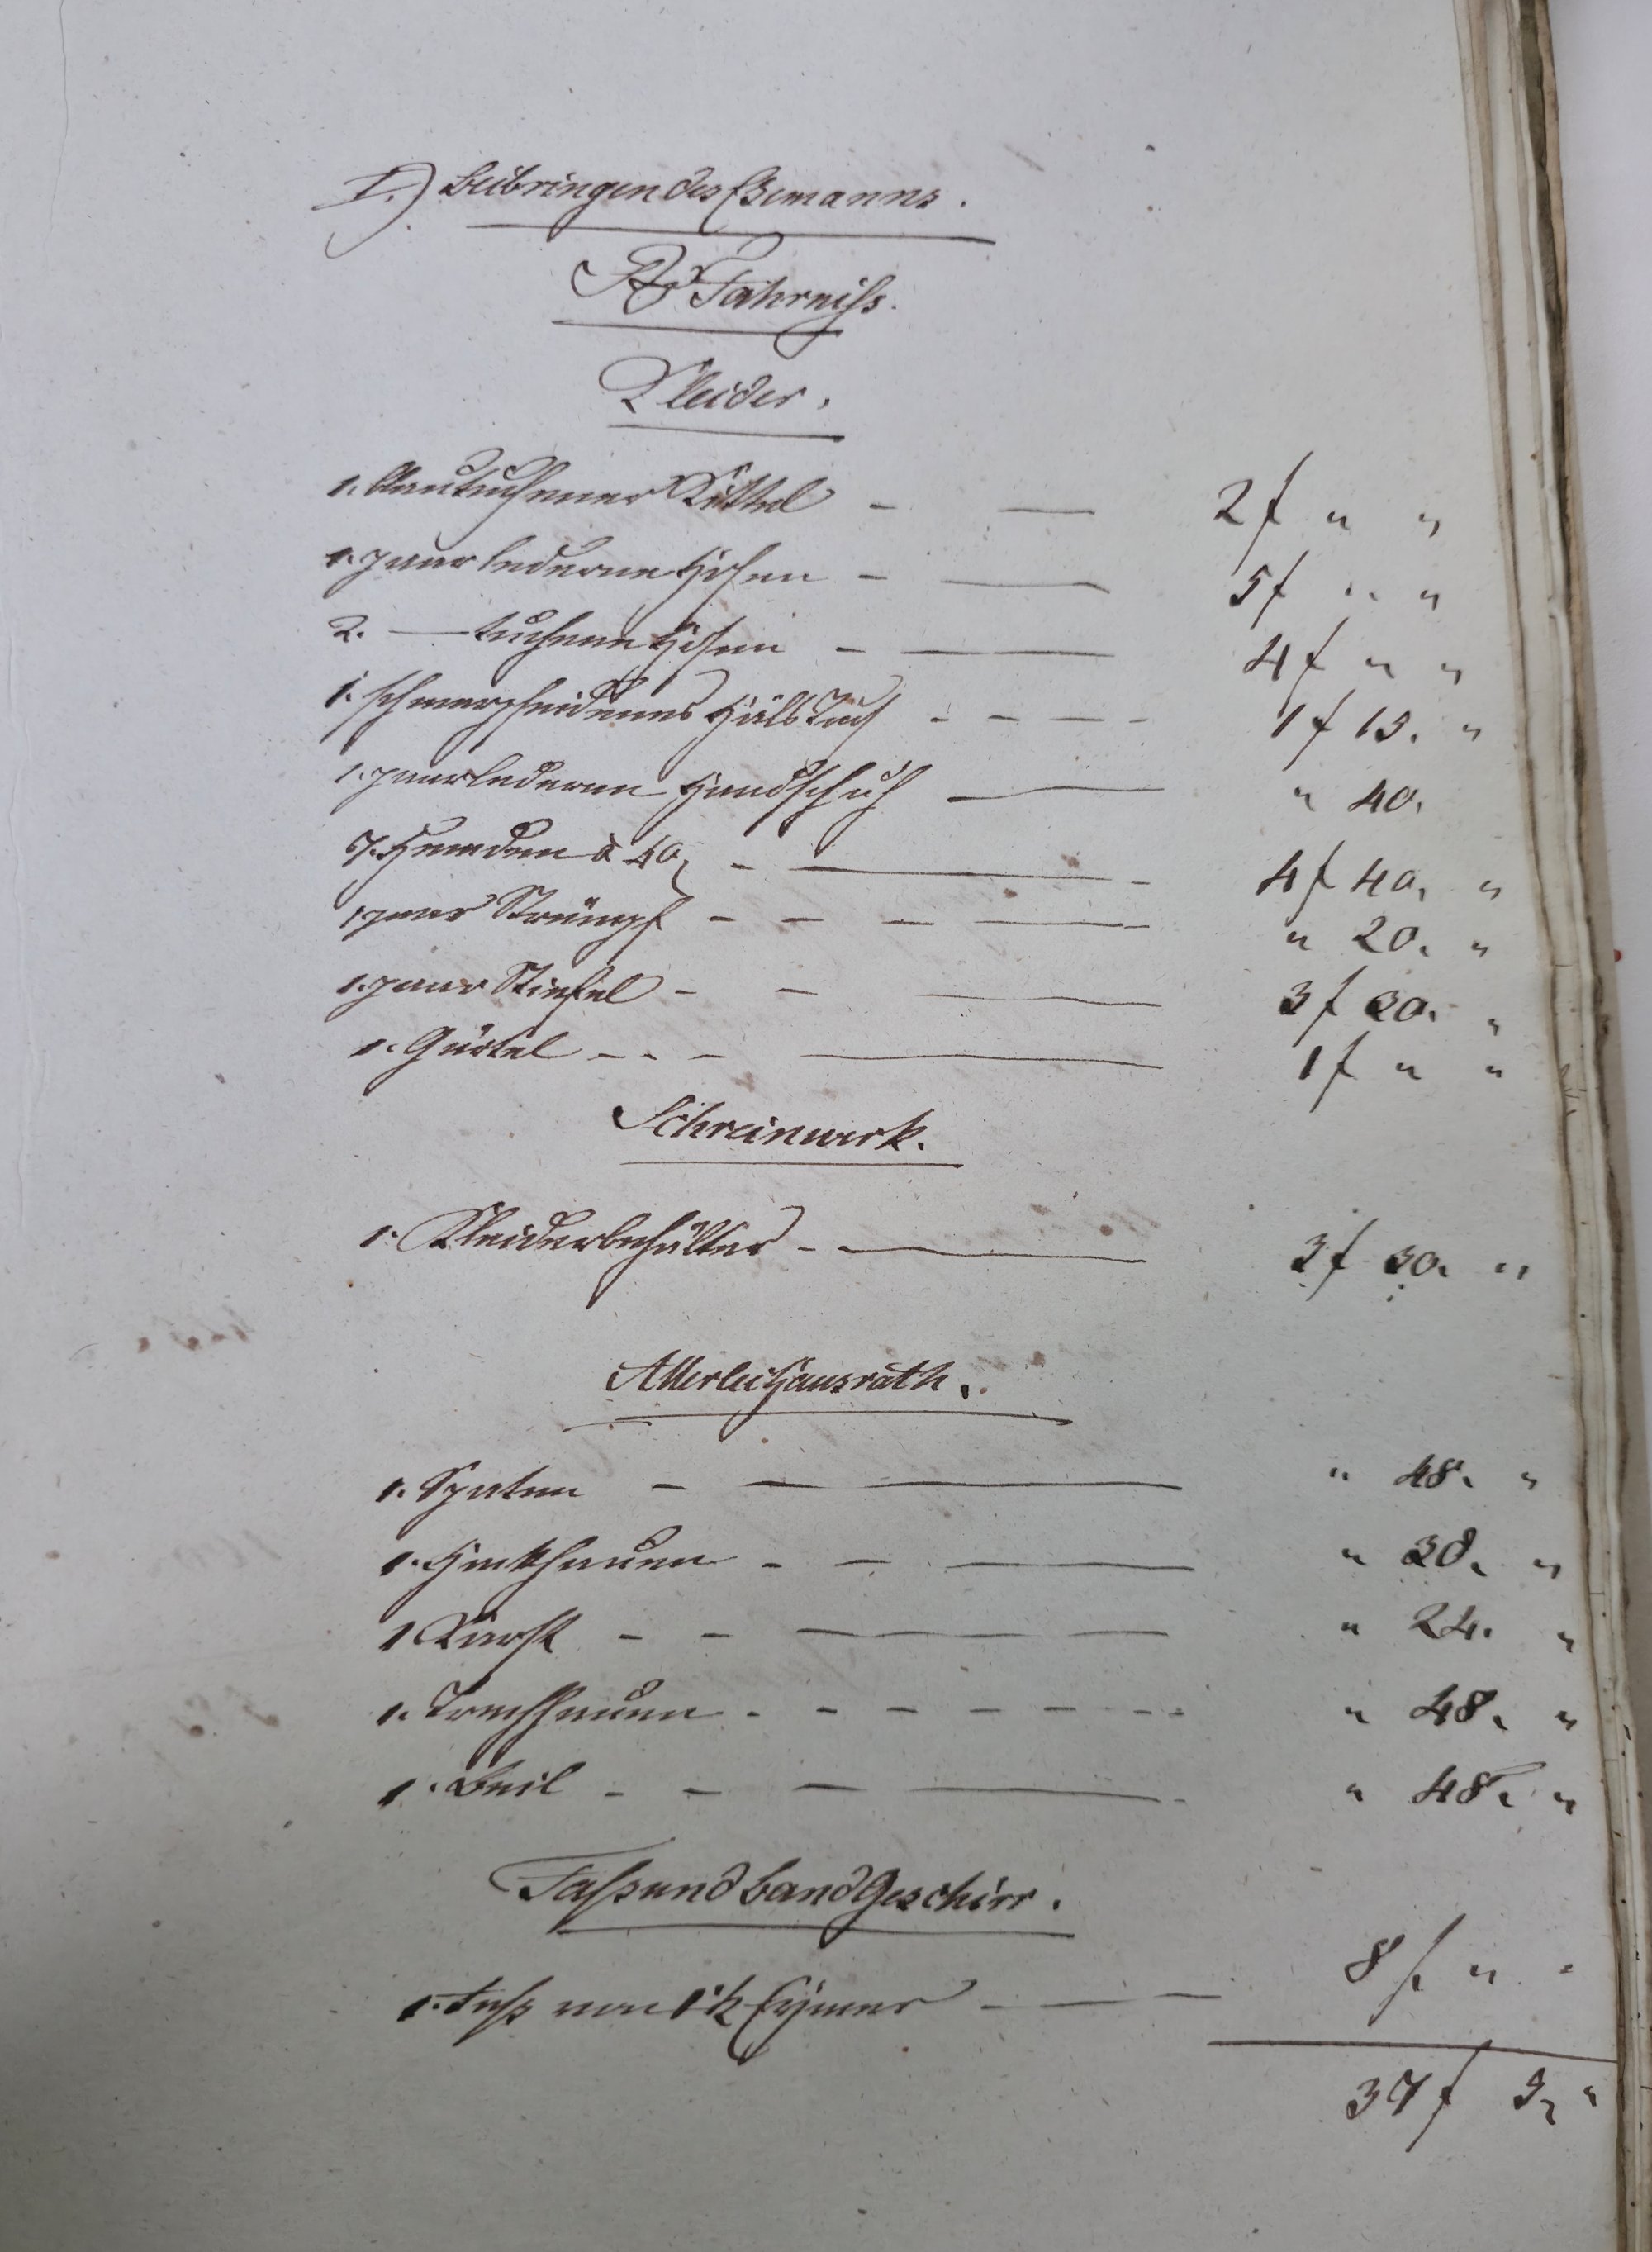 I.) Beibringen des Ehemanns.
A, Fahrniss.
Kleider.
1. blautuchener Kittel — 2 f " "
1. paar lederne Hosen — 5 f " "
2. — tuchene Hosen — 4 f " "
1. schwarzseidenes Halstuch — 1 f 15. "
1. paar lederne Handschuh — " 40.
7. Hemden à 40, — 4 f 40, "
1 paar Strümpf — " 20. "
1. paar Stiefel — 3 f 20. "
1. Gürtel — 1 f " "
Schreinwerk.
1. Kleiderbehälter — 3 f 30. "
Allerlei Hausrath.
1. Spaten — " 48. "
1. Hackhauen — " 30. "
1 Karst — " 24. "
1. Brechhauen — " 48. "
1. Beil — " 48. "
Fass und Band Geschirr.
1. Fass von 1 1/2 Eymer — 8 f " "
37 f 3, "